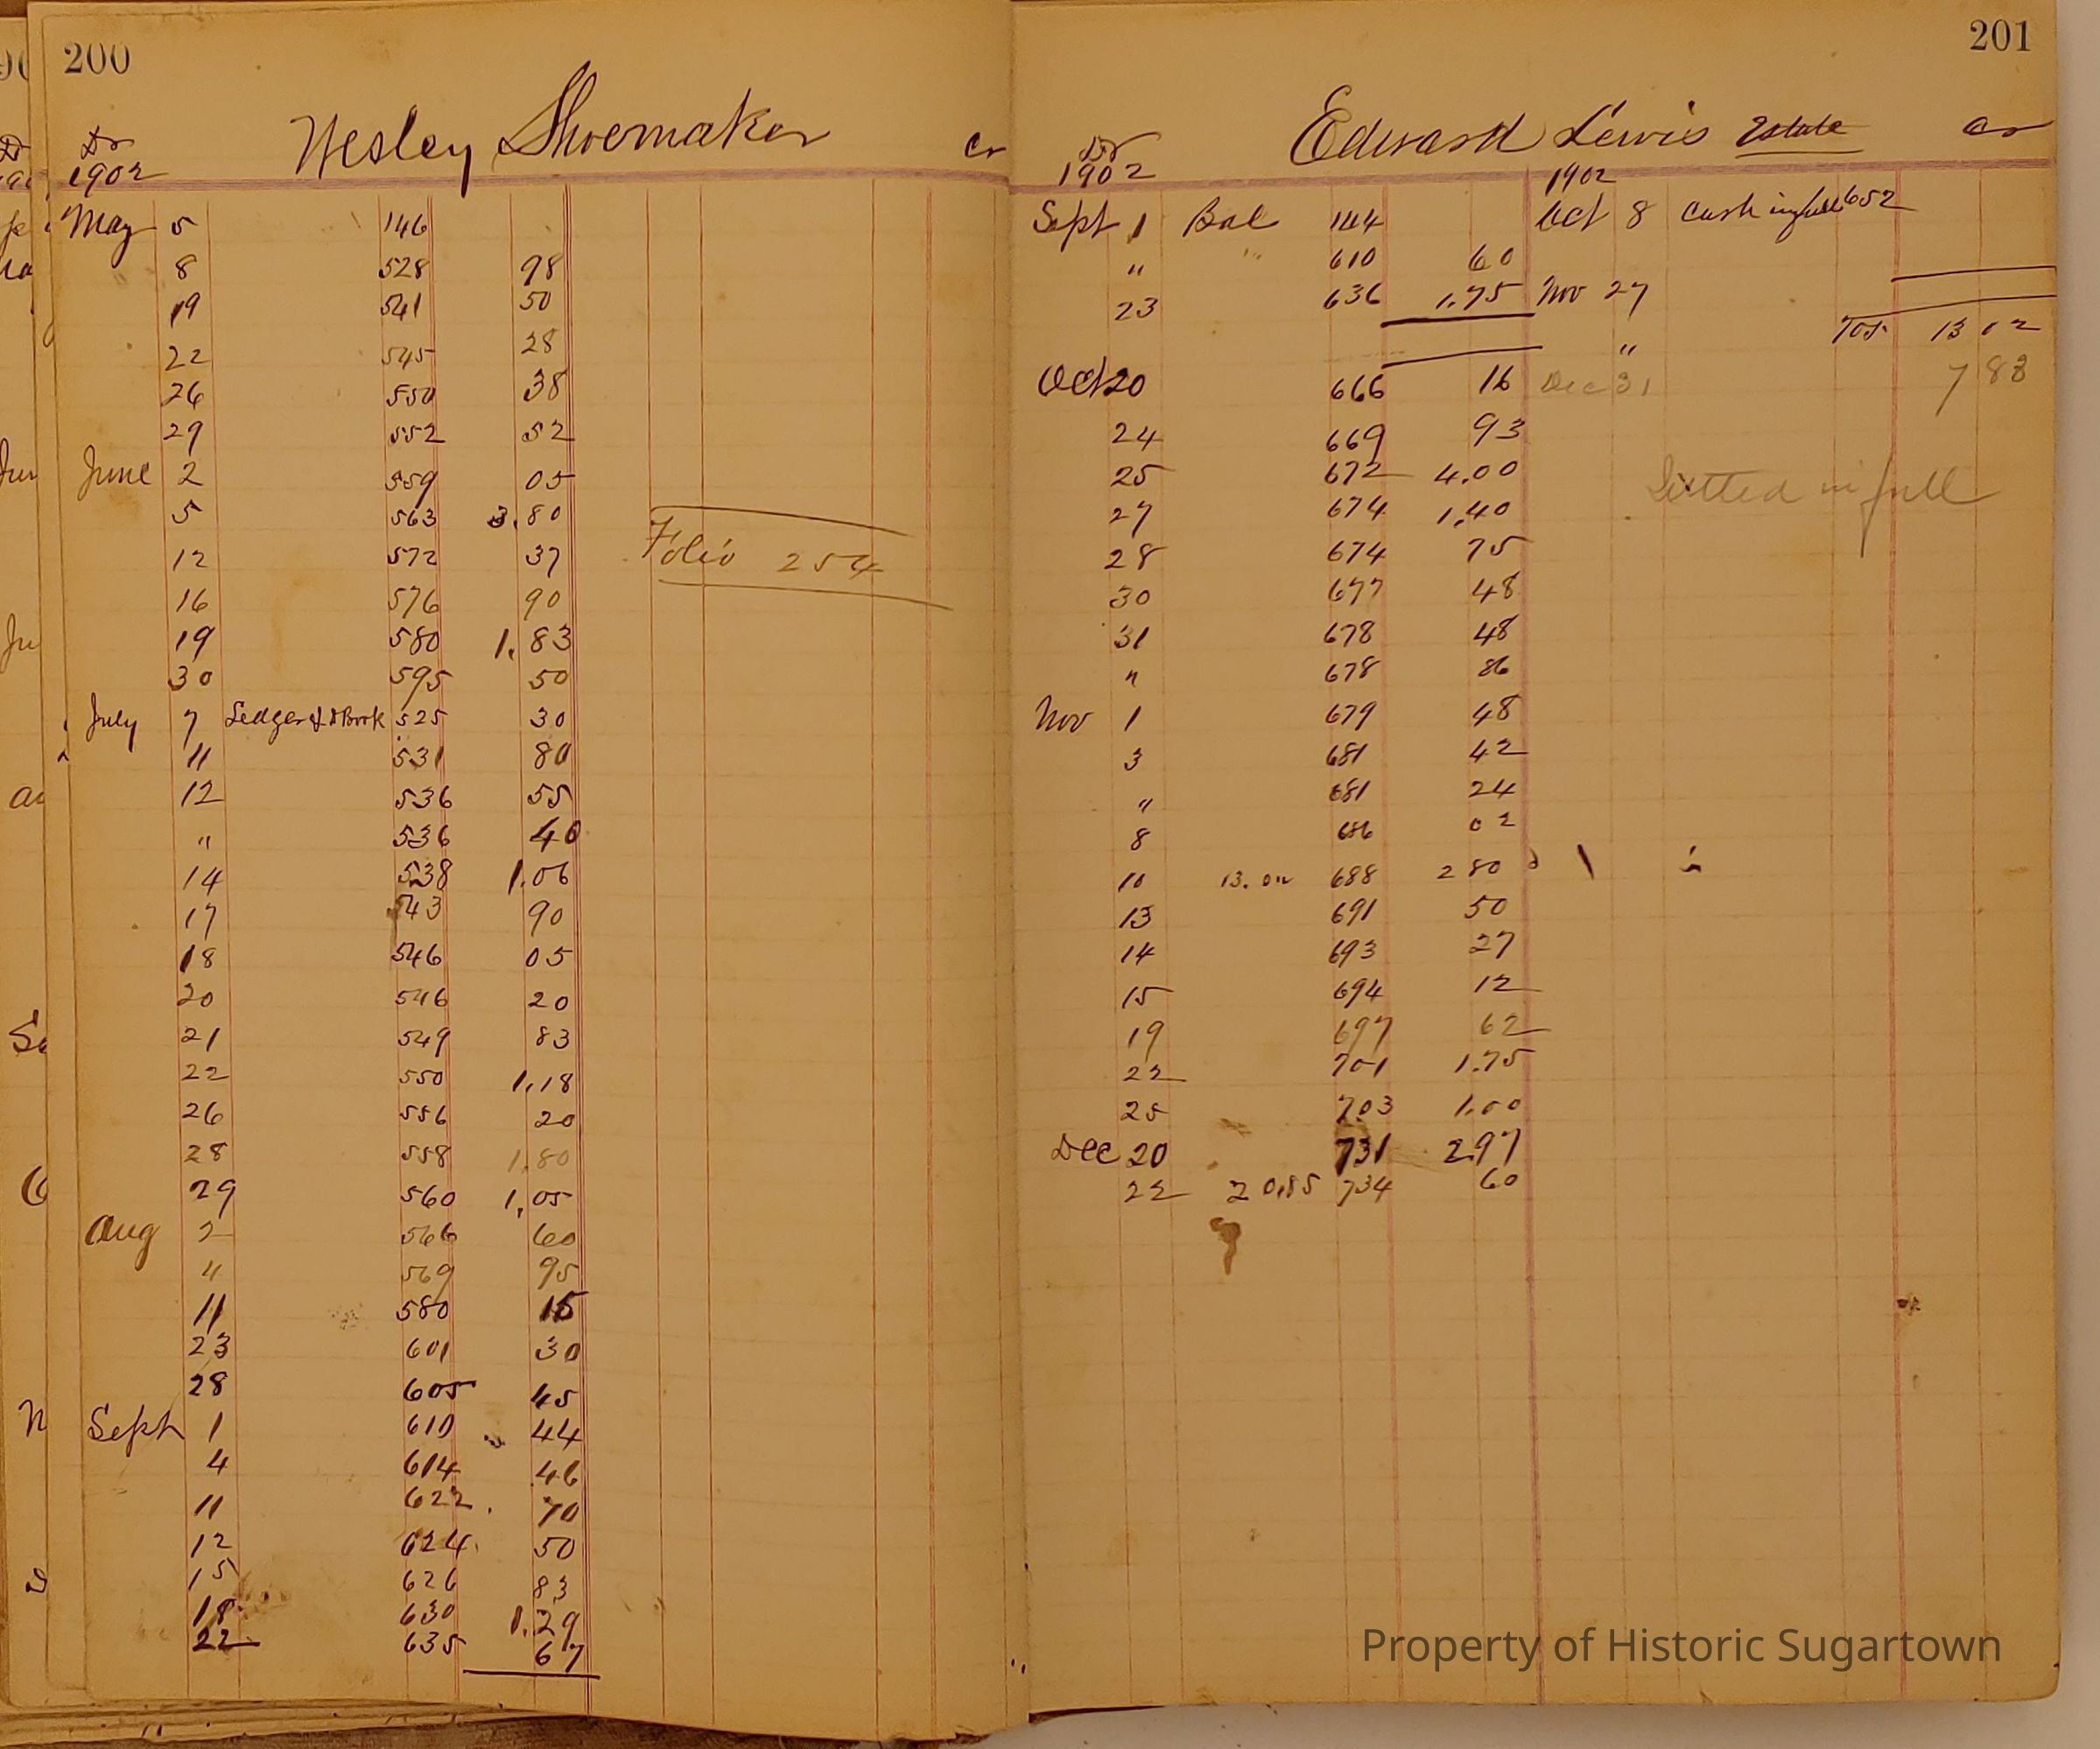 200
Wesley Shoemaker
Dr Cr
1902
May 5 146
8 528 98
19 541 50
22 545 28
26 550 38
29 552 52
June 2 559 05
5 563 3.80
12 572 37
16 576 90
19 580 1.83
30 595 50
July 7 Ledger & D Book 525 30
11 531 80
12 536 55
" 536 40
14 538 1.06
17 543 90
18 546 05
20 546 20
21 549 83
22 550 1.18
26 556 20
28 558 1.80
29 560 1.05
Aug 2 566 60
" 569 95
11 580 15
23 601 30
28 605 45
Sept 1 610 44
4 614 46
11 622 70
12 624 50
15 626 83
18 630 1.29
22 635 67
Folio 254
201
Edward Lewis Estate
Dr Cr
1902 1902
Sept 1 Bal 144 Oct 8 Cash in full 652
" 610 60
23 636 1.75 Nov 27
" Tos 13 02
Oct 20 666 16 Dec 31 7 83
24 669 93
25 672 4.00 Settled in full
27 674 1.40
28 674 75
30 677 48
31 678 48
" 678 86
Nov 1 679 48
3 681 42
" 681 24
8 686 02
10 688 2 80
13 691 50
14 693 27
15 694 12
19 697 62
22 701 1.75
25 703 1.00
Dec 20 731 2.97
22 20.85 734 60
Property of Historic Sugartown